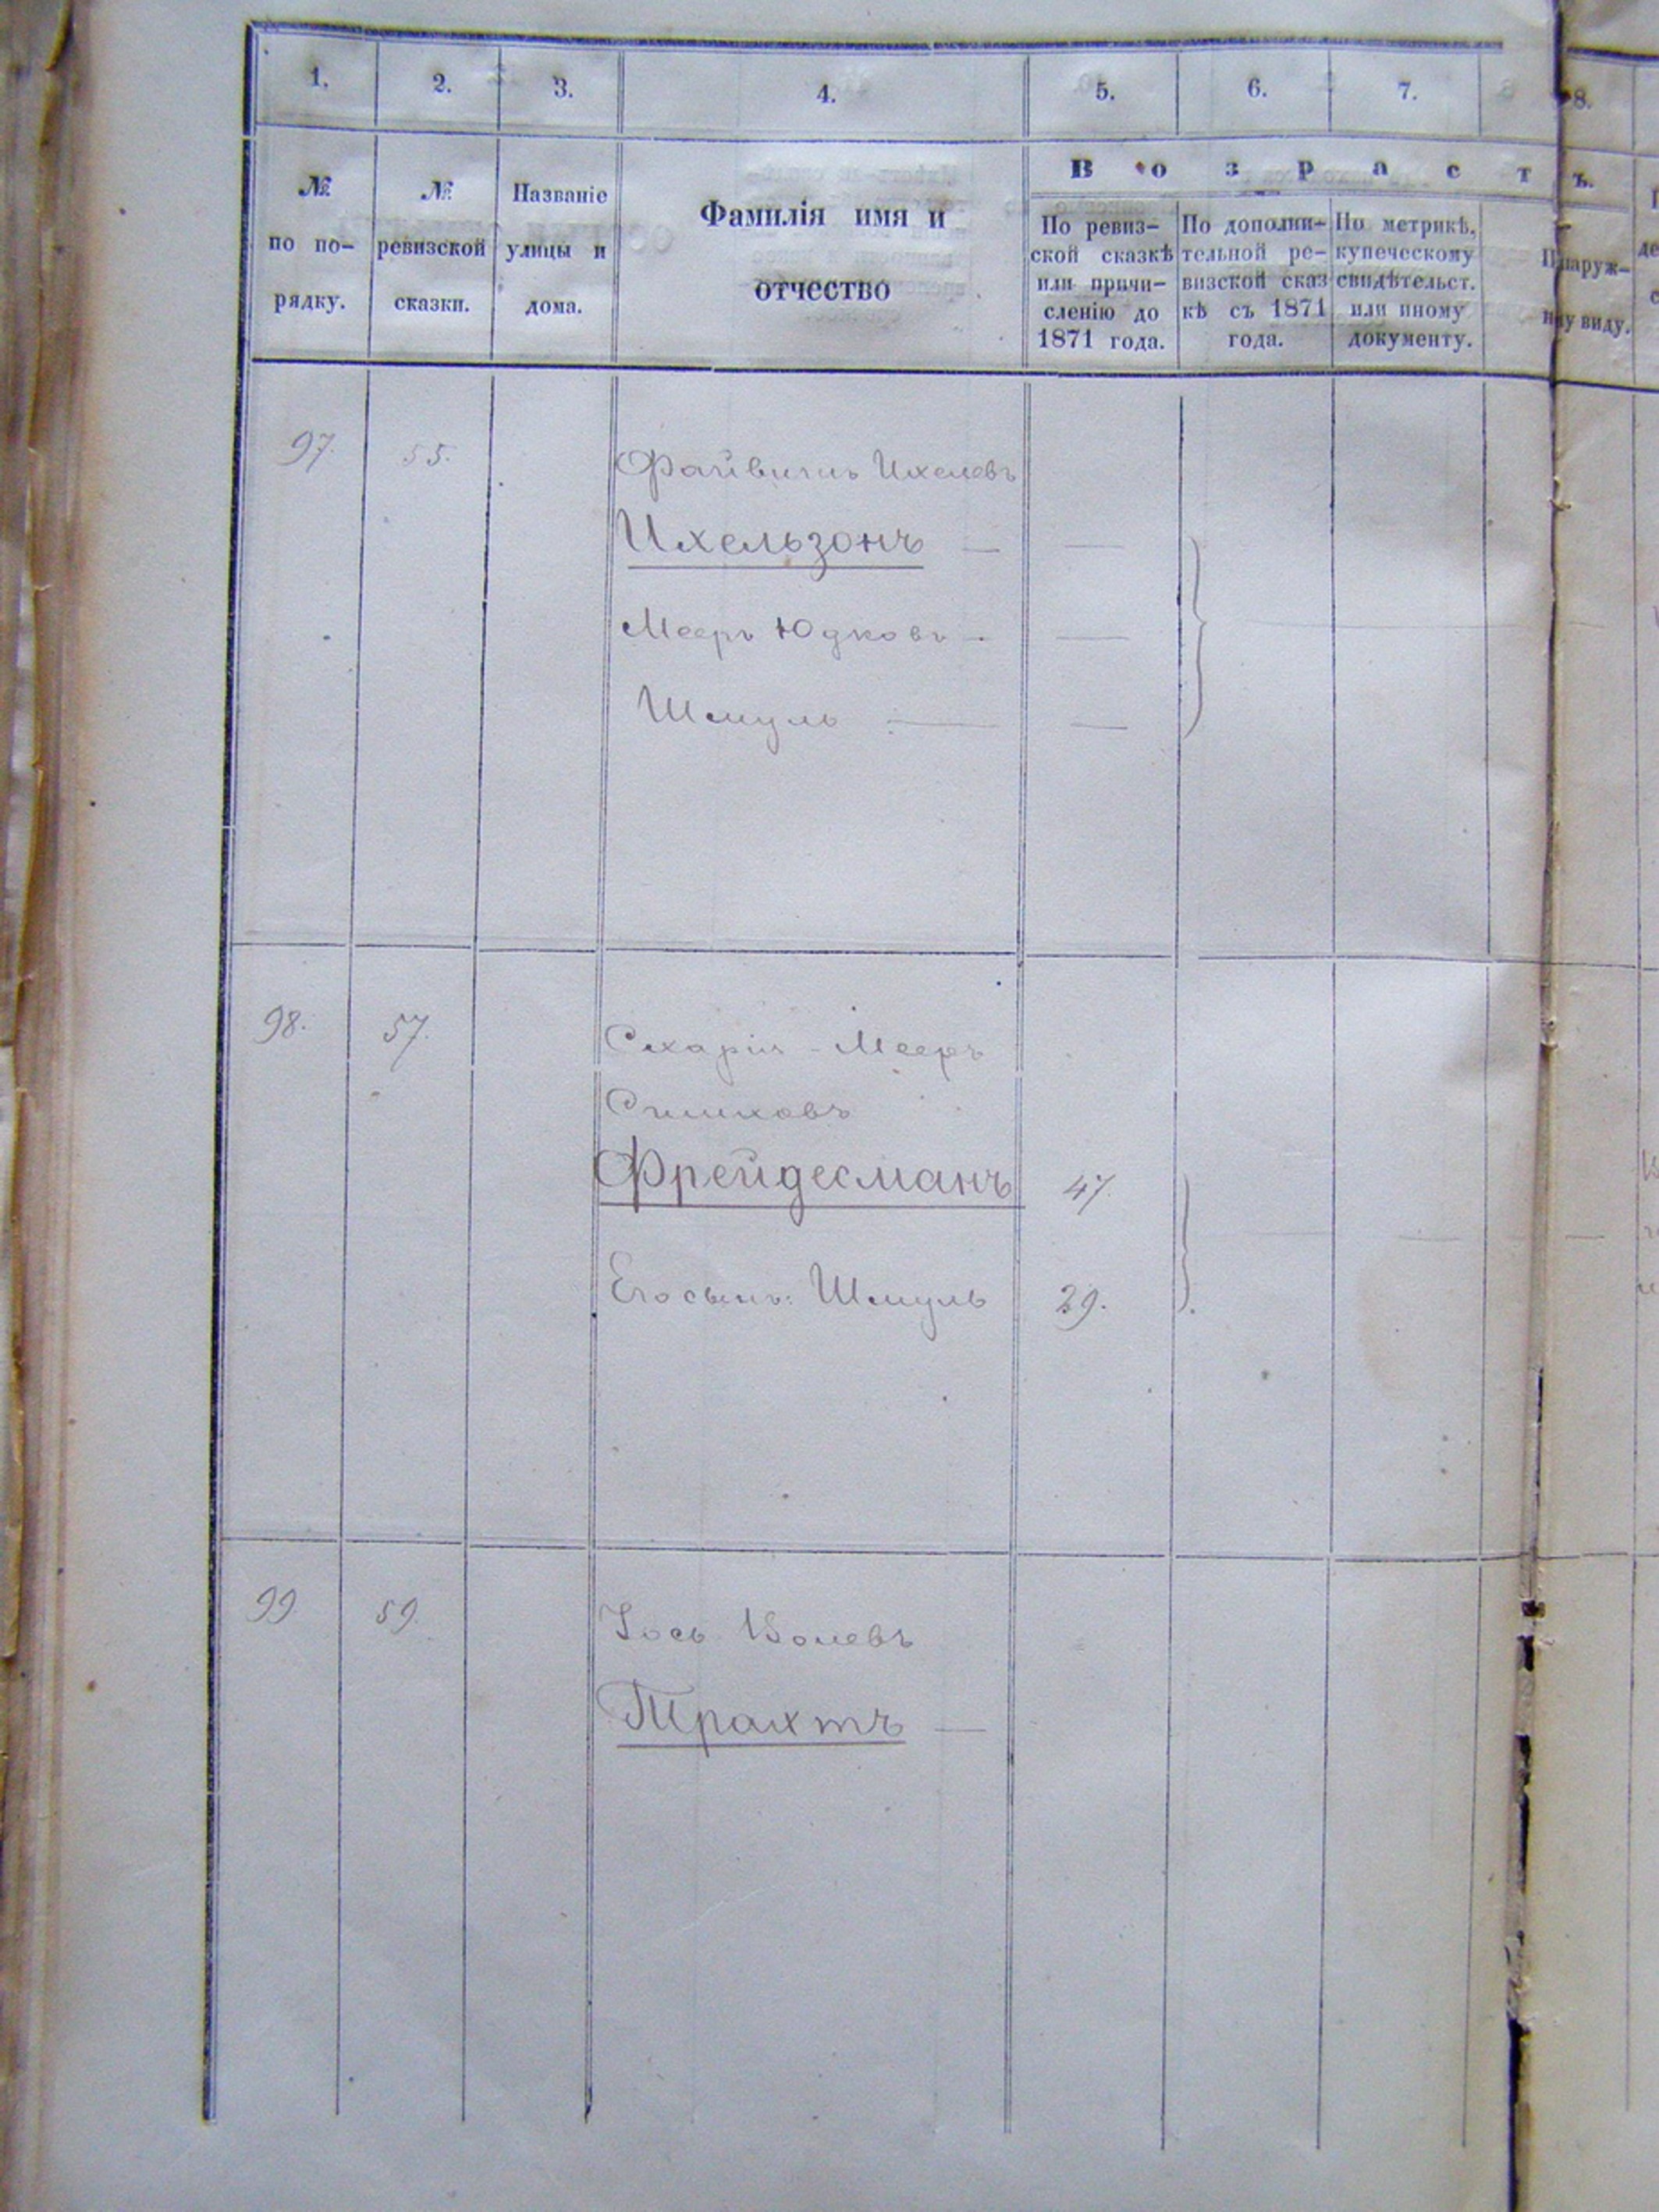 1. 2. 3. 4. 5. 6. 7. 8.
№ по по- рядку.
№ ревизской сказки.
Названіе улицы и дома.
Фамилія имя и
отчество
Возрастъ.
По ревиз-
ской сказкѣ
или причи-
сленію до
1871 года.
По дополни-
тельной ре-
визской сказ
кѣ съ 1871
года.
По метрикѣ,
купеческому
свидѣтельст.
или иному
документу.
наруж-
у виду.
97. 55. Файвишъ Ихелевъ
Ихельзонъ —
Мееръ Юдковъ —
Шмуль —
98. 57. Схарія - Мееръ
Фрейдесманъ 47.
Его сынъ: Шмуль 29.
99. 59. Іось
Трахтъ —